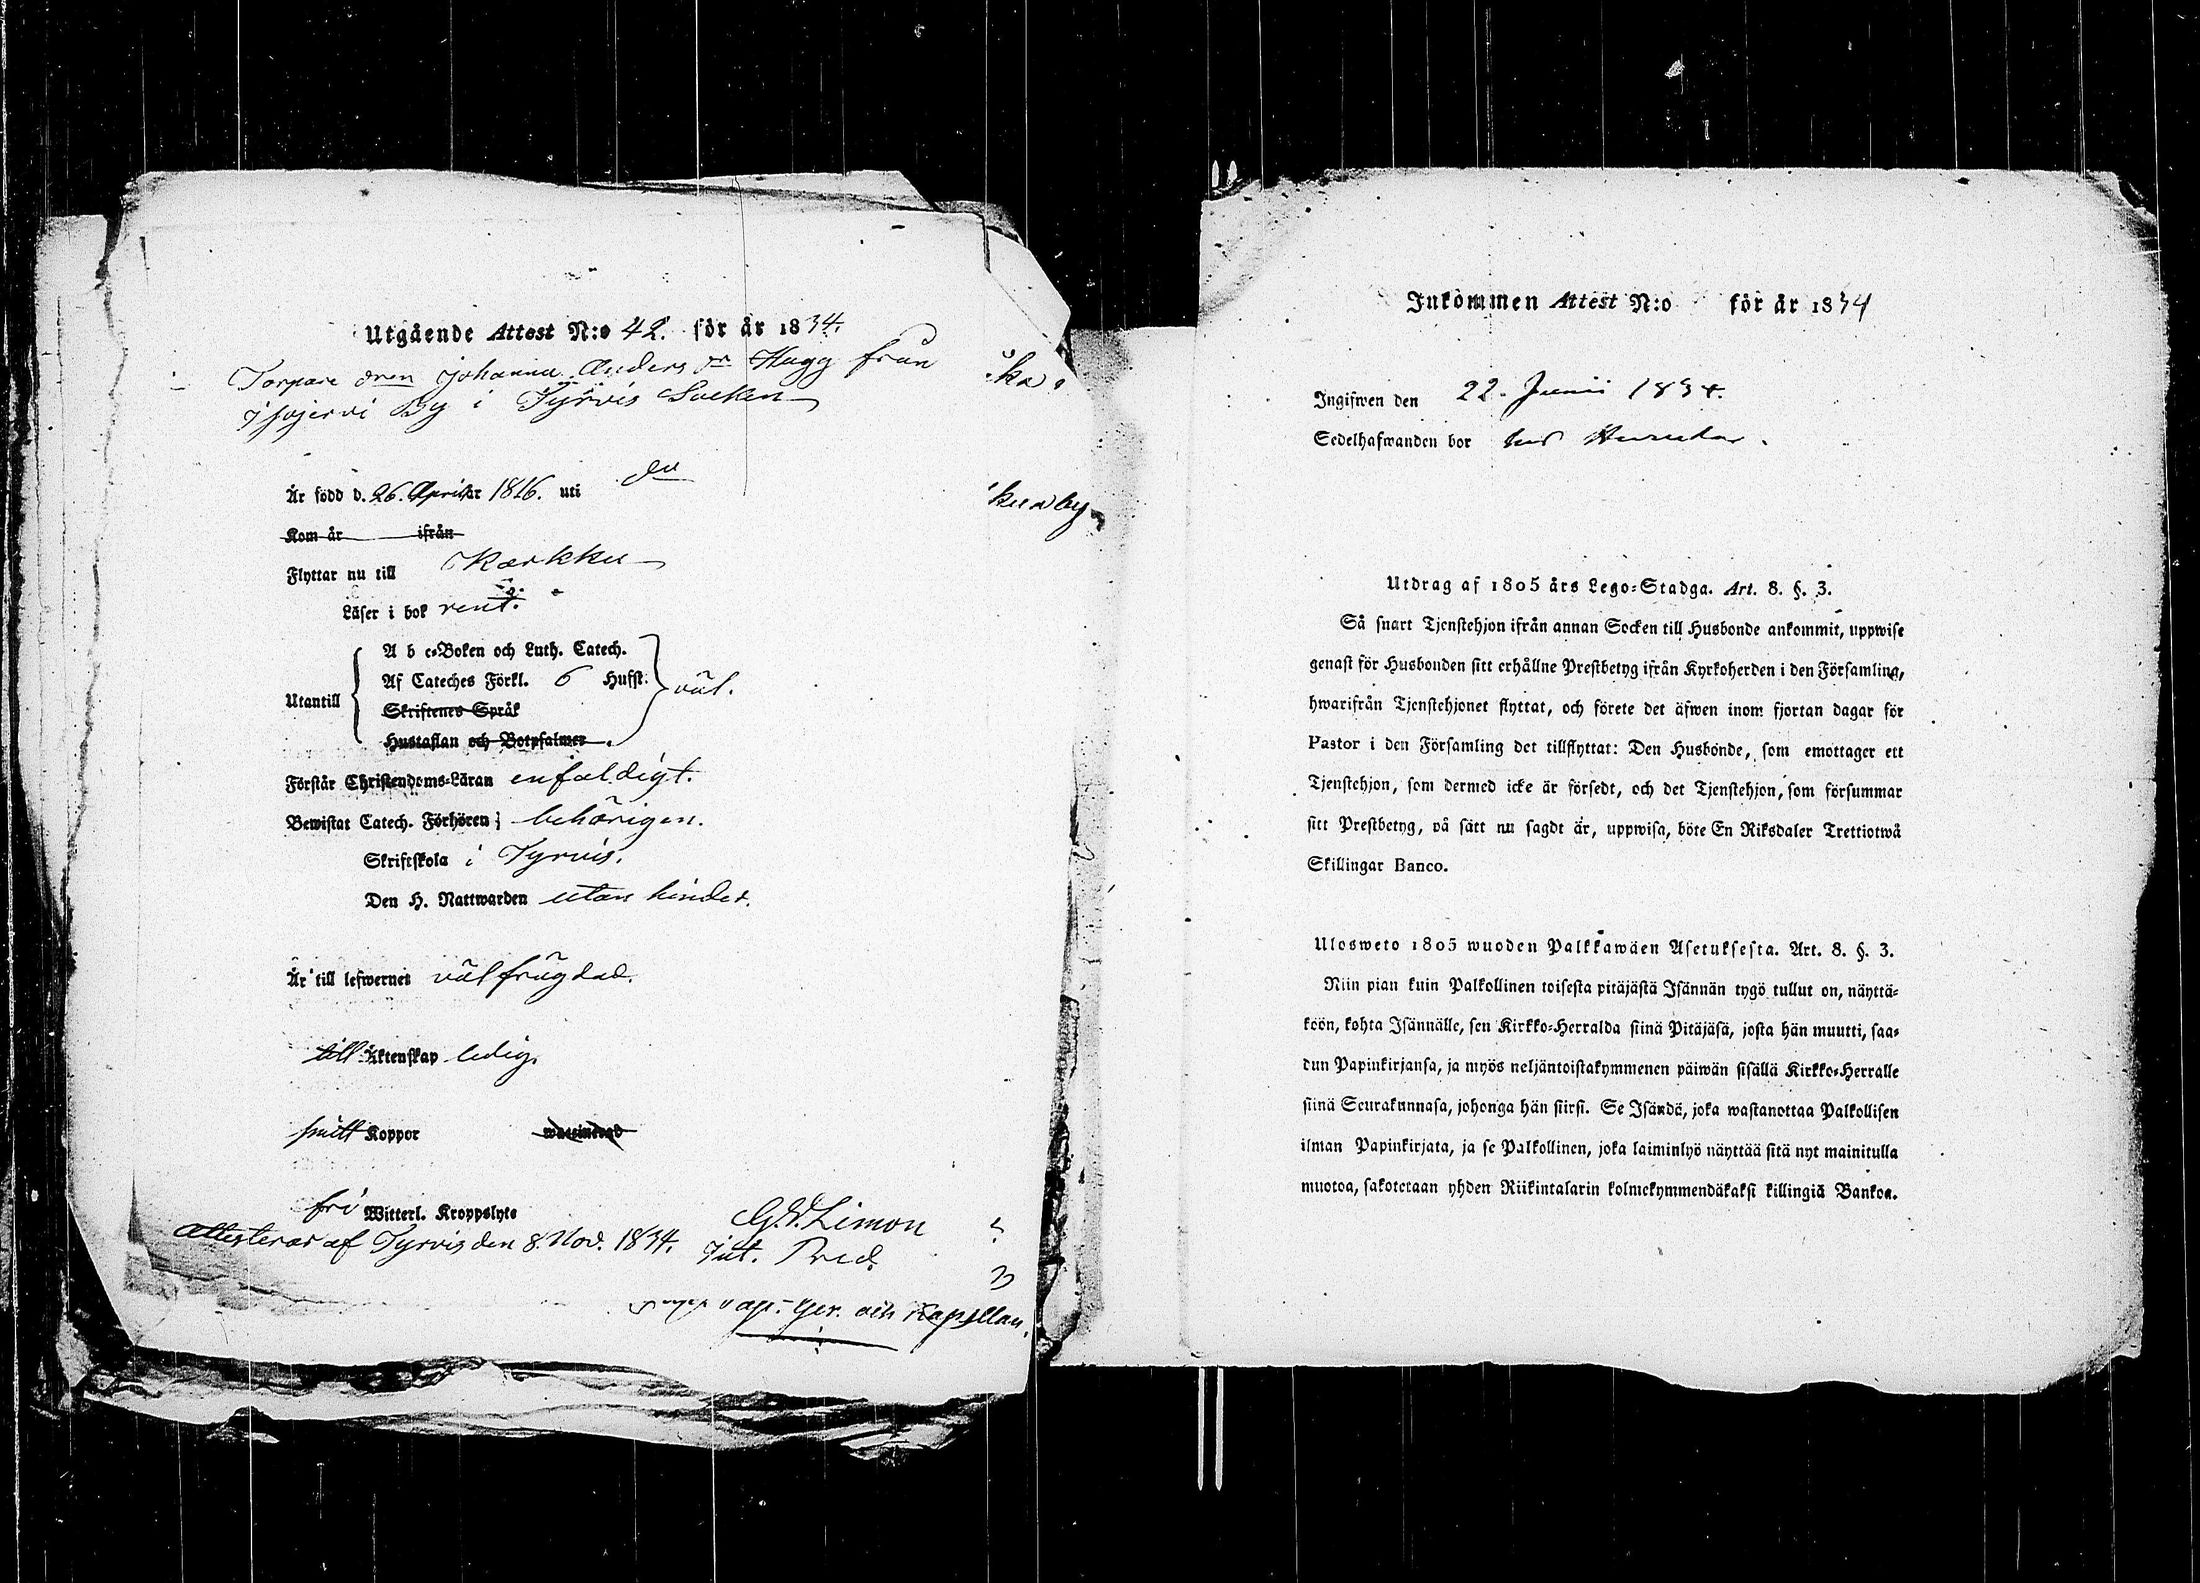 Utgående Attest N:o 42. för år 1834.
Torpare dren Johanna Anders dr Hagg från
By i Tyrvis Socken
Är född d. 26. April år 1816. uti do
Kom år ifrån
Flyttar nu till Karkku
Läser i bok rent.
Utantill
A b c-Boken och Luth. Catech.
Af Cateches Förkl. 6 Hufst.
väl.
Skriftenes Språk
Hustaflan och Botpsalmer.
Förstår Christendoms-Läran enfaldigt.
Bewistat Catech. Förhören; behörigen.
Skriftskola i Tyrvis.
Den H. Nattwarden utan hinder.
Är till lefwernet välfrägdad.
till Äktenskap ledig.
haft Koppor waccinerad
fri Witterl. Kroppslyte
Attesteras af Tyrvis den 8. Nov. 1834.
G. W. Limon
Pred.
och Kapellan.
Inkommen Attest N:o för år 1834
Ingifwen den 22. Junii 1834.
Sedelhafwanden bor
Utdrag af 1805 års Lego-Stadga. Art. 8. §. 3.
Så snart Tjenstehjon ifrån annan Socken till Husbonde ankommit, uppwise
genast för Husbonden sitt erhållne Prestbetyg ifrån Kyrkoherden i den Församling,
hwarifrån Tjenstehjonet flyttat, och förete det äfwen inom fjortan dagar för
Pastor i den Församling det tillflyttat: Den Husbonde, som emottager ett
Tjenstehjon, som dermed icke är försedt, och det Tjenstehjon, som försummar
sitt Prestbetyg, på sätt nu sagdt är, uppwisa, böte En Riksdaler Trettiotwå
Skillingar Banco.
Ulosweto 1805 wuoden Palkkawäen Asetuksesta. Art. 8. §. 3.
Niin pian kuin Palkollinen toisesta pitäjästä Isännän tygö tullut on, näyttä-
köön, kohta Isännälle, sen Kirkko-Herralda siinä Pitäjäsä, josta hän muutti, saa-
dun Papinkirjansa, ja myös neljäntoistakymmenen päiwän sisällä Kirkko-Herralle
siinä Seurakunnasa, johonga hän siirsi. Se Isändä, joka wastanottaa Palkollisen
ilman Papinkirjata, ja se Palkollinen, joka laiminlyö näyttää sitä nyt mainitulla
muotoa, sakotetaan yhden Riikintalarin kolmekymmendäkaksi killingiä Bankoa.